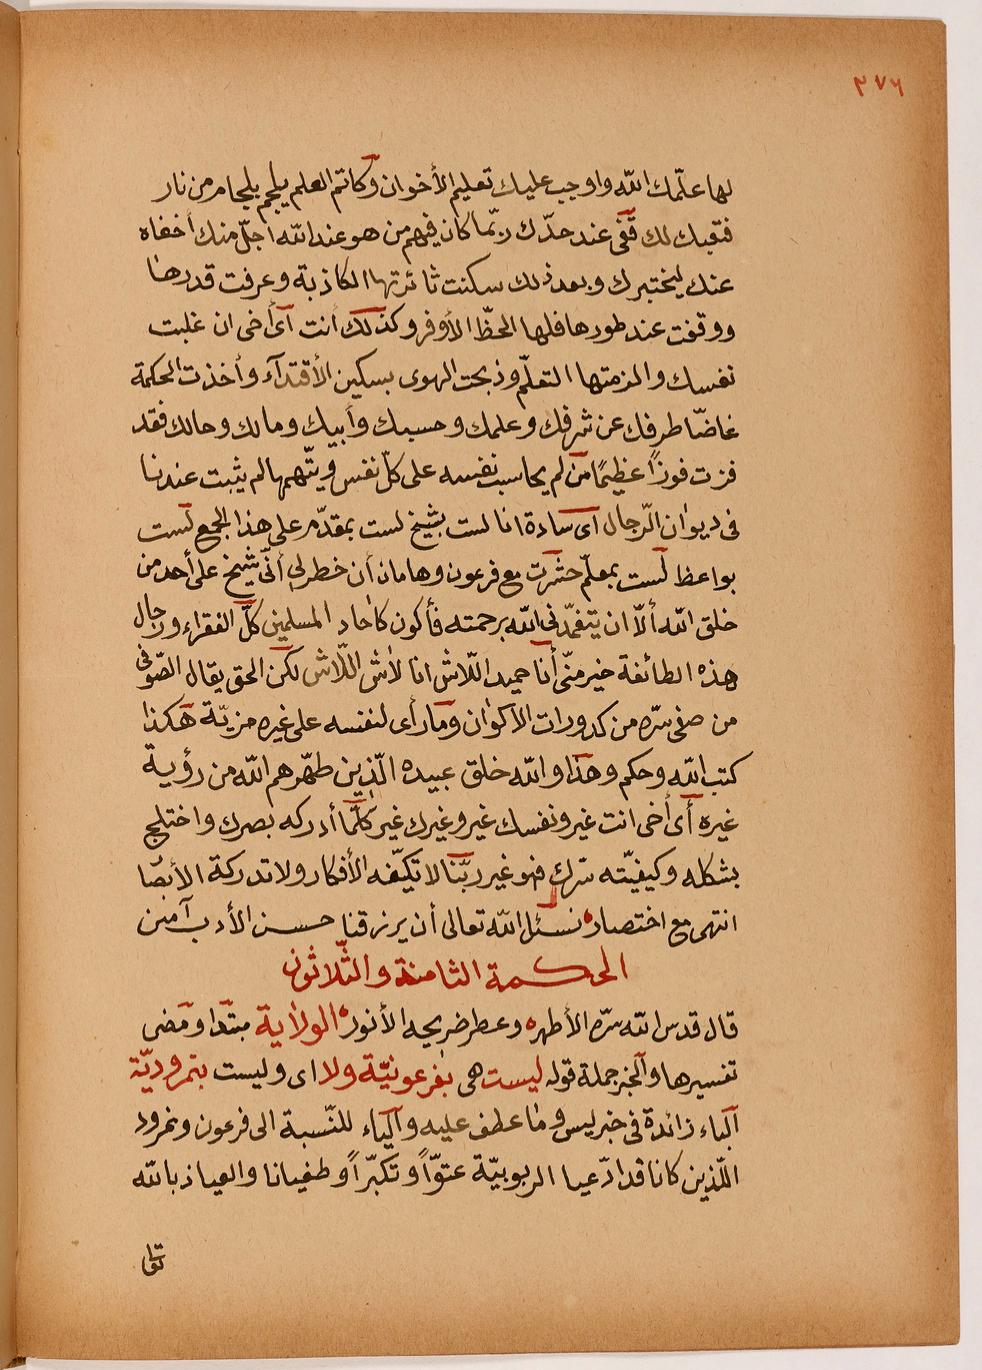 ٣٧٦
لها علّمك الله واوجب عليك تعليم الأخوان وكاتم العلم يلجم بلجام من نار
فتعبك لك قفى عند حدّك ربّما كان فيهم من هو عند الله اجلّ منك أخفاه
عنك ليختبرك وبعد ذلك سكنت ثائرتها الكاذبة وعرفت قدرها
ووقفت عند طورها فلها الحظّ الأوفر وكذلك أنت أى أخى ان غلبت
نفسك والزمتها التعلّم وذبحت الهوى بسكين الأقتدآء وأخذت الحكمة
غاضّا طرفك عن شرفك وعلمك وحسبك وأبيك ومالك وحالك فقد
فزت فوزاً عظيمًا من لم يحاسب نفسه على كلّ نفس ويتّهمها لم يثبت عندنا
فى ديوان الرّجال اى سادة انا لست بشيخ لست بمقدّم على هذا الجمع لست
بواعظ لست بمعلّم حشرت مع فرعون وهامان أن خطر لى أنّى شيخ على أحد من
خلق الله ألاّ ان يتغمّدنى الله برحمته فأكون كاحاد المسلمين كلّ الفقراء ورجال
هذه الطائفة خير منّى أنا حميد اللّاش انا لاش اللّاش لكن الحق يقال الصّوفى
من صفى سرّه من كدورات الأكوان ومارأى لنفسه على غيره مزيّة هكذا
كتب الله وحكم وهذا والله خلق عبيده الّذين طهّرهم الله من رؤية
غيره أى أخى انت غير ونفسك غير وغيرك غير كلّما أدركه بصرك واختلج
بشكله وكيفيّته سرّك فهو غير ربّنا لا تكيّفه الأفكار ولا تدركة الأبصا
انتهى مع اختصار نسئل الله تعالى أن يرزقنا حسن الأدب آمين
الحكمة الثامنة والثّلاثون
قال قدس الله سرّه الأطهر وعطر ضريحه الأنور الولاية مبتدا ومضى
تفسيرها والخبر جملة قوله ليست هى بفرعونيّة ولا اى وليست بنمروديّة
الباء زائدة فى خبر ليس وما عطف عليه والياء للنّسبة الى فرعون ونمرود
اللّذين كانا قد ادّعيا الربوبيّة عتوّاً وتكبّراً وطغيانا والعياذ بالله
تعا